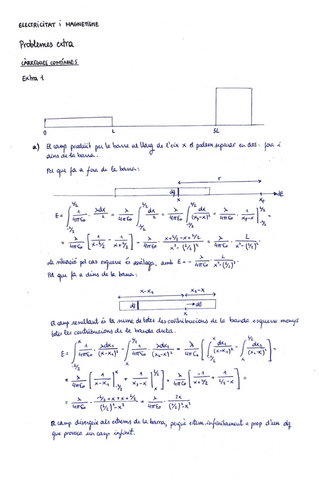 ELECTRICITAT i MAGNETISME
Problemes extra
CÀRREGUES CONTÍNUES
Extra 1
0 L 5L
a) El camp produït per la barra al llarg de l'eix x el podem separar en dos: fora i
dins de la barra.
Pel que fa a fora de la barra:
r
x xp dE
E = ∫ 1/4πε₀ · λdx/r² = λ/4πε₀ ∫ dx/r² = λ/4πε₀ ∫ dx/(xp-x)² = λ/4πε₀ · 1/(xp-x) =
= λ/4πε₀ [1/(x-L/2) - 1/(x+L/2)] = λ/4πε₀ · (x+L/2-x+L/2)/(x²-(L/2)²) = λ/4πε₀ · L/(x²-(L/2)²).
La situació pel cas esquerre és anàloga, amb E = - λ/4πε₀ L/(x²-(L/2)²).
Pel que fa a dins de la barra:
x-x₁ x₂-x
dE
El camp resultant és la suma de totes les contribucions de la banda esquerra menys
totes les contribucions de la banda dreta.
E = ∫ 1/4πε₀ · λdx₁/(x-x₁)² - ∫ 1/4πε₀ · λdx₂/(x₂-x)² = λ/4πε₀ [∫ dx₁/(x-x₁)² - ∫ dx₂/(x₂-x)²] =
= λ/4πε₀ [1/(x-x₁) + 1/(x₂-x)] = λ/4πε₀ [-1/(x+L/2) + 1/(L/2-x)] =
= λ/4πε₀ · (-L/2+x+x+L/2)/((L/2)²-x²) = λ/4πε₀ · 2x/((L/2)²-x²).
El camp divergeix als extrems de la barra, perquè etem infinitament a prop d'un dq
que provoca un camp infinit.